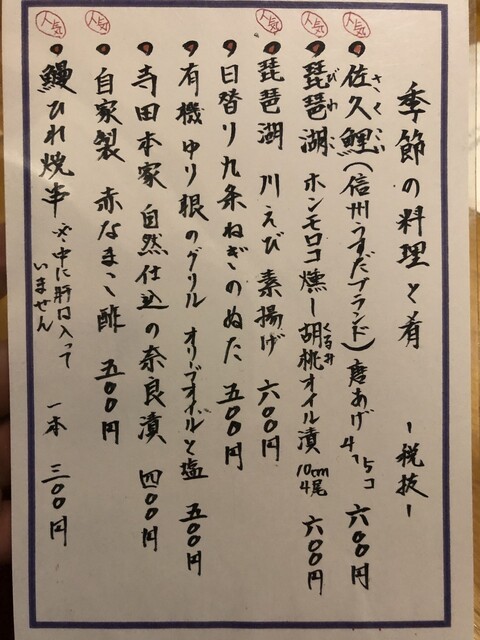 季節の料理と肴 ー税抜ー
人気
佐久鯉(信州うすだブランド)唐あげ 4〜5コ 六〇〇円
さくこい
人気
琵琶湖 ホンモロコ燻し胡桃オイル漬 10cm 4尾 六〇〇円
びわ
くるみ
人気
琵琶湖 川えび 素揚げ 六〇〇円
日替り九条ねぎのぬた 五〇〇円
有機ゆり根のグリル オリーブオイルと塩 五〇〇円
寺田本家 自然仕込の奈良漬 四〇〇円
人気
自家製 赤なまこ酢 五〇〇円
人気
鰻ひれ焼串 ※中に肝は入って
いません
一本 三〇〇円